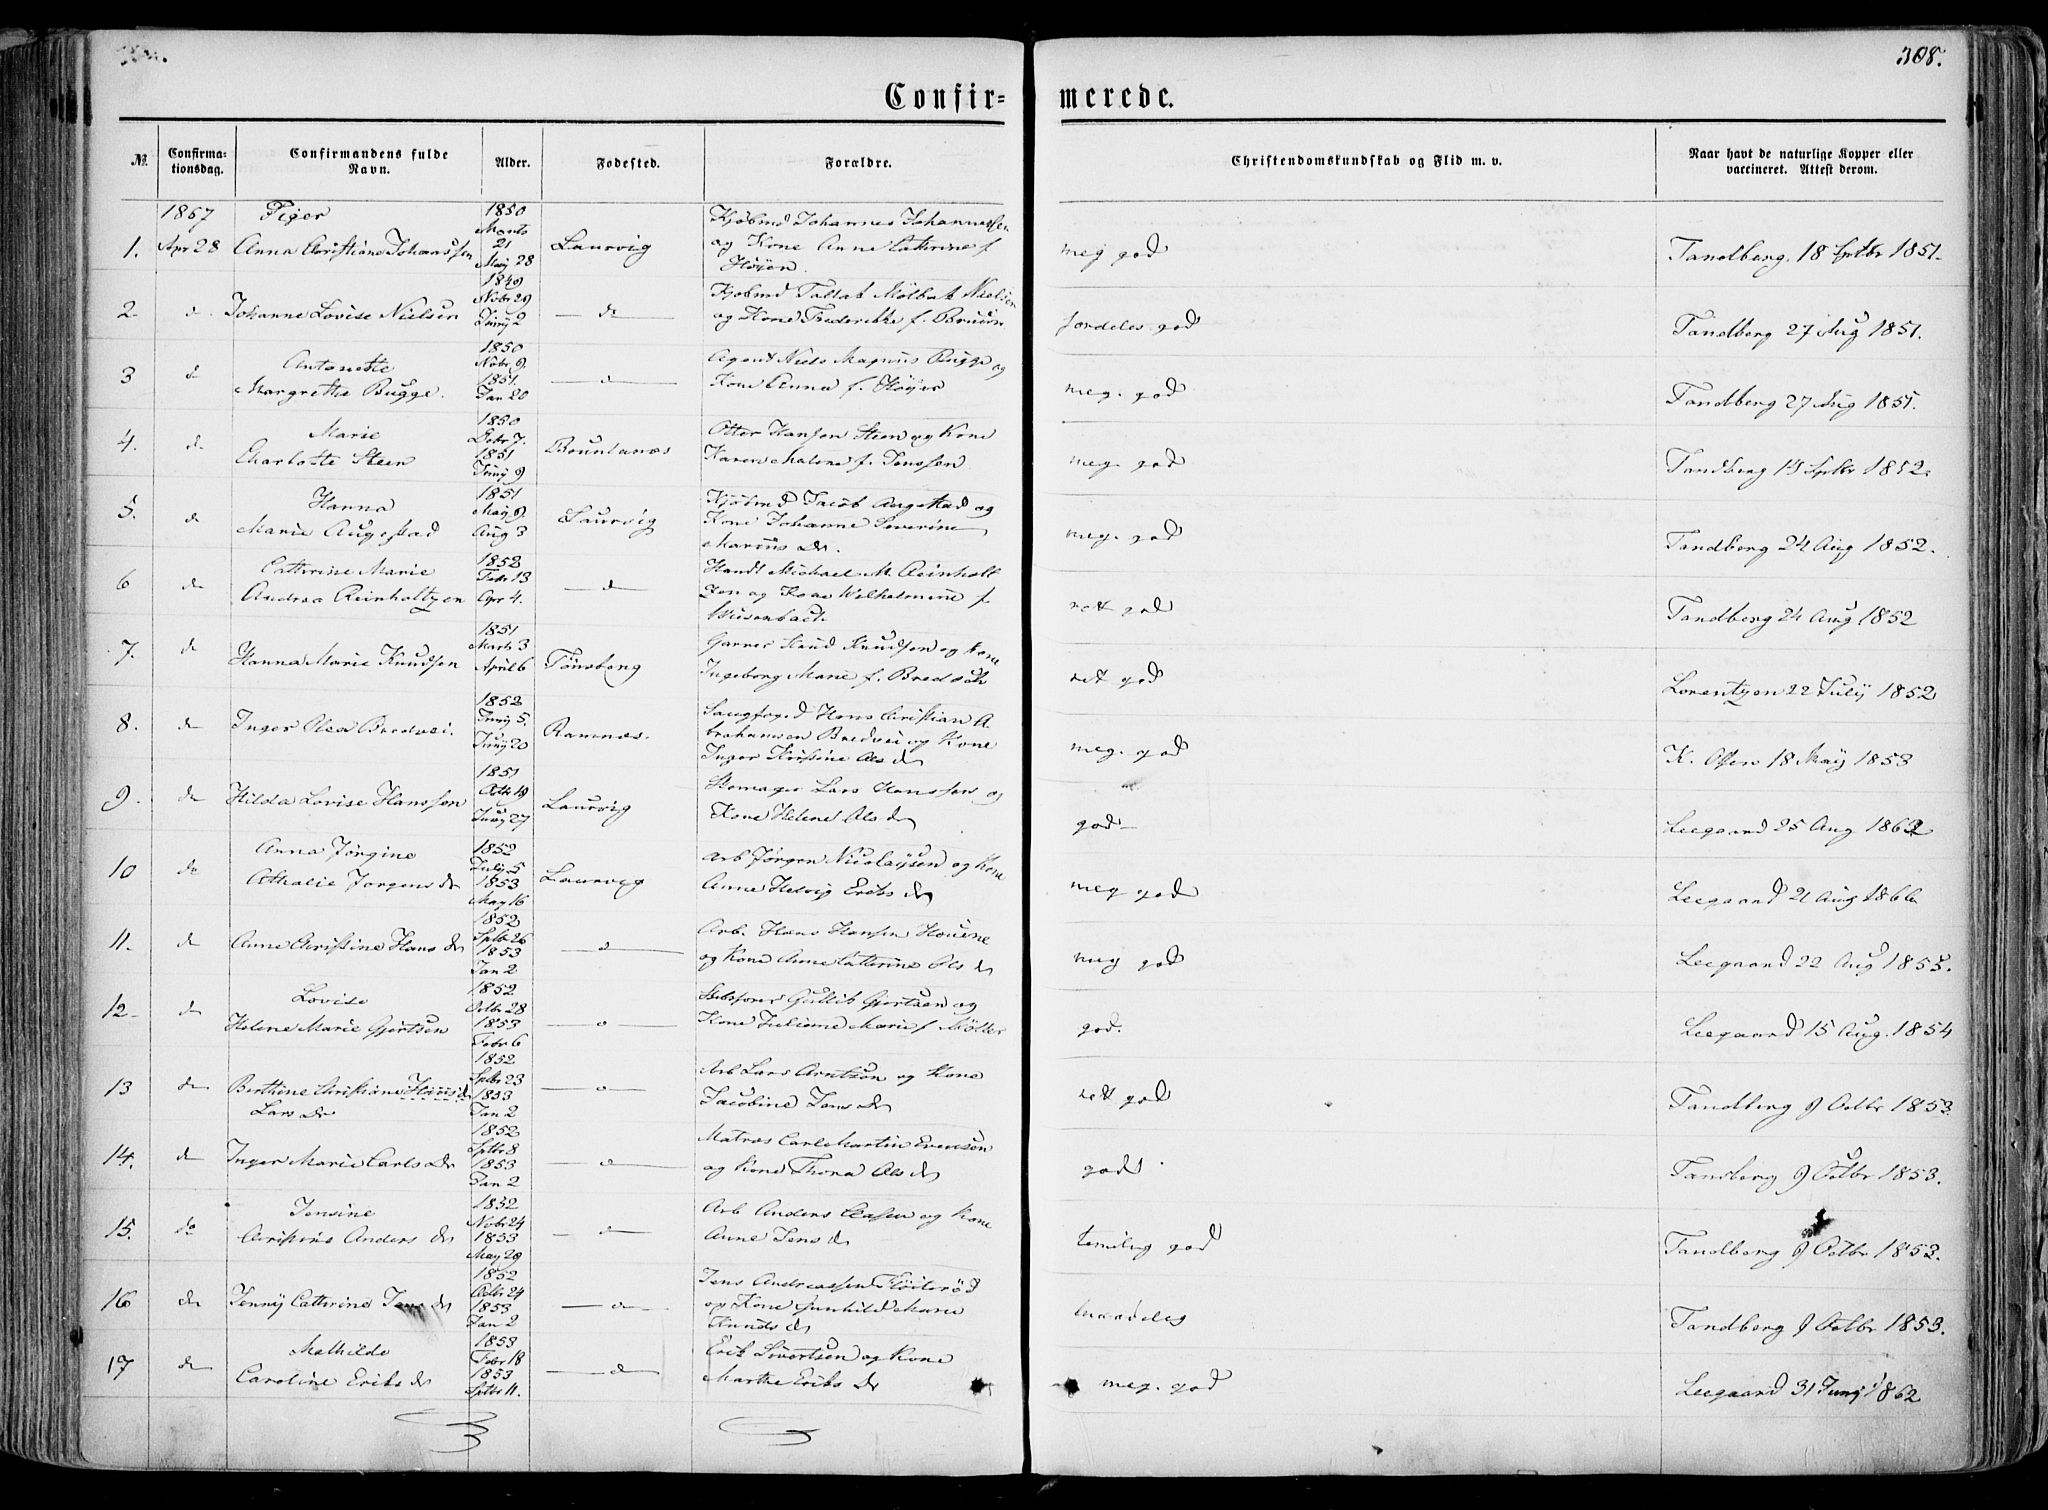 308.
Confir- merede.
№ Confirma- tionsdag. Confirmandens fulde Navn. Alder. Fødested. Forældre. Christendomskundskab og Flid m. v. Naar havt de naturlige Kopper eller vaccineret. Attest derom.
1867 Piger 1850 Kjøbmd Johannes Johannessen
Marts
1. Apr 28 Anna Christiane Johanssen 21 Laurvig og Kone Anne Cathrine f. meg god Tandberg 18 Sptbr 1851.
May 28 Høyer.
1849
2. d Johanne Lovise Nielsen Nobr 29 d Kjøbmd Nielsen
Juny 2 og Kone Frederikke f. Bruun særdeles god Tandberg 27 Aug 1851.
1850
3 d Antonette Nobr 9. d Agent Niels Magnus Bugge og
1851.
Margrethe Bugge. Jan 20 Kone Anna f. Høyer meg. god Tandberg 27 Aug 1851.
1850
4. d Marie Debr 7. Otter Hansen Steen og Kone
Charlotte Steen 1851 Brunlanæs Karen Malene f. Jenssen meg. god Tandberg 14 Sptbr 1852.
Juny 9
5. d Hanna 1851 Laurvig Kjøbmd Jacob Augestad og
May 9. Kone Johanne Severine
Marie Augestad Aug 3 Marius Dr. meg. god Tandberg 24 Aug 1852.
6 d Cathrine Marie 1852 d Handl Michael M. Reinholt
Febr 13
Andrea Reinholtzen Apr 4. zen og Kone Wilhelmine f. ret god Tandberg 24 Aug 1852
Wiesenbach
1851
7. d Hanna Marie Knudsen Marts 3 Tønsberg Garver Knud Knudsen og Kone
April 6 Ingeborg Marie f. Bredoch ret god Lorentzen 22 July 1852
1852
8. d Inger Olea Bredvei. Juny 5. Ramnæs. Hans Christian A
Juny 20 brahamsen Bredvei og Kone meg. god K. Olsen 18 May 1853
Inger Kirstine Ols dr
1851
9. d Hilda Lovise Hanssen Octbr 19 Laurvig Skomager Lars Hanssen og
Juny 27 Kone Helene Ols dr god Leegaard 25 Aug 1862
10 do Anna Jørgine 1852 Arb Jørgen Nicolaysen og Kone
July 5
Athalie Jørgens dr 1853 Laurvig Anne Helvig Eriks dr meg god Leegaard 21 Aug 1866
May 16
1852
11. d Anne Christine Hans dr Sptbr 26 d Arb. Hans Hansen Houene
1853
Jan 2 og Kone Anne Cathrine Ols dr meg god Leegaard 22 Aug 1855.
12 d Lovise 1852 Gullik Gjertsen og
Octbr 28
Helene Marie Gjertsen 1853 d Kone Juliane Marie f Møller god. Leegaard 15 Aug. 1854
Febr 6
1852
13 d Berthine Christiane Hans dr Sptbr 23 d Arb Lars Arntsen og Kone
Lars Dr 1853
Jan 2 Jacobine Jens Dr ret god Tandberg 9 Octbr 1853.
1852
14. d Inger Marie Carls Dr Sptbr 8 d Matros Carl Martin Evensen
1853
Jan 2 og Kone Thora Ols dr godt Tandberg 9 Octbr 1853.
15. do Jensine 1852 Arb Anders Olassen og Kone
Nobr 24
Christine Anders dr 1853 d Anne Jens dr temelig god Tandberg 9 Octbr 1853.
May 29
1852
16 d Jenny Cathrine Jens dr Octbr 24 d Jens Andreassen Fløiterød
1853 og Kone Gunhild Marie
Jan 2 Knuds dr Tandberg 9 Octbr 1853.
17 d Mathilde 1853 d Erik Sivertsen og Kone
Febr 18
Caroline Eriks dr 1853 Marthe Eriks Dr meg. god Leegaard 31 Juny 1862
Sptbr 11.